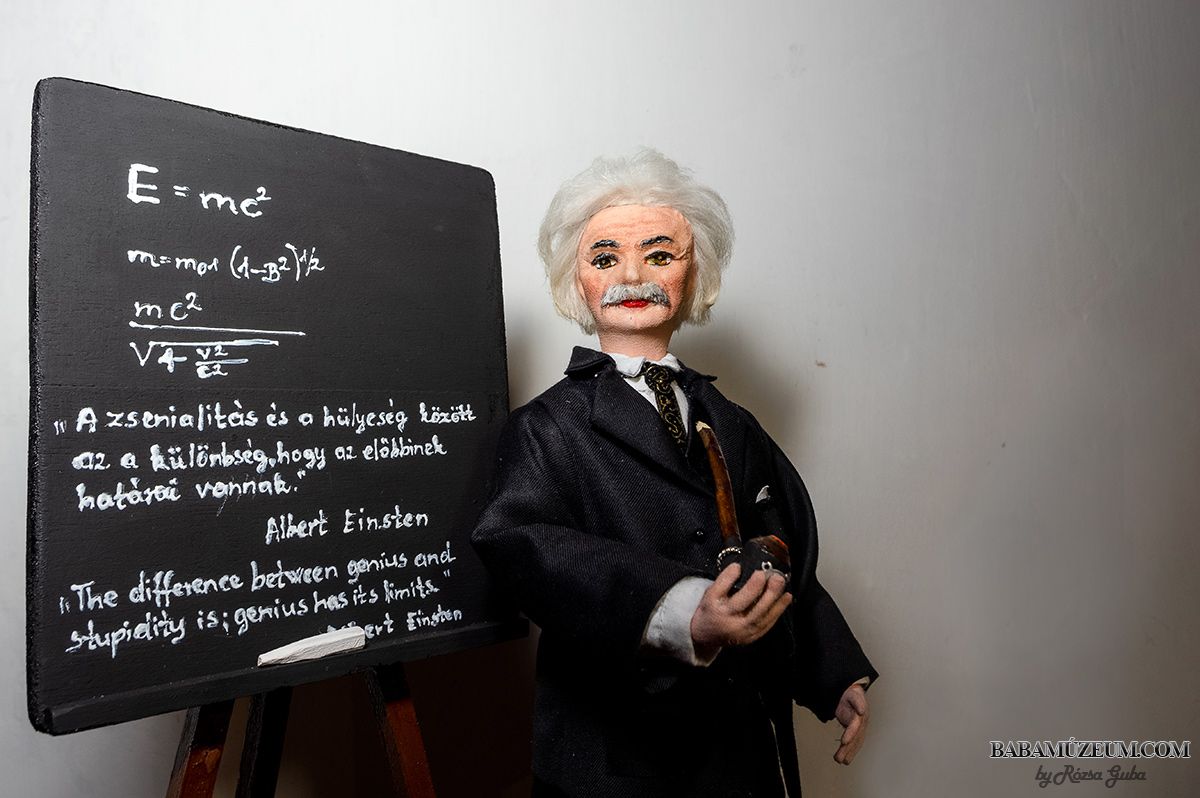 E = mc²
m=m01 (1-B²)1/2
mc²
√1- v²
c²
"A zsenialitás és a hülyeség között
az a különbség, hogy az előbbinek
határai vannak."
Albert Einsten
"The difference between genius and
stupidity is; genius has its limits."
Einsten
BABAMÚZEUM.COM
by Rózsa Guba